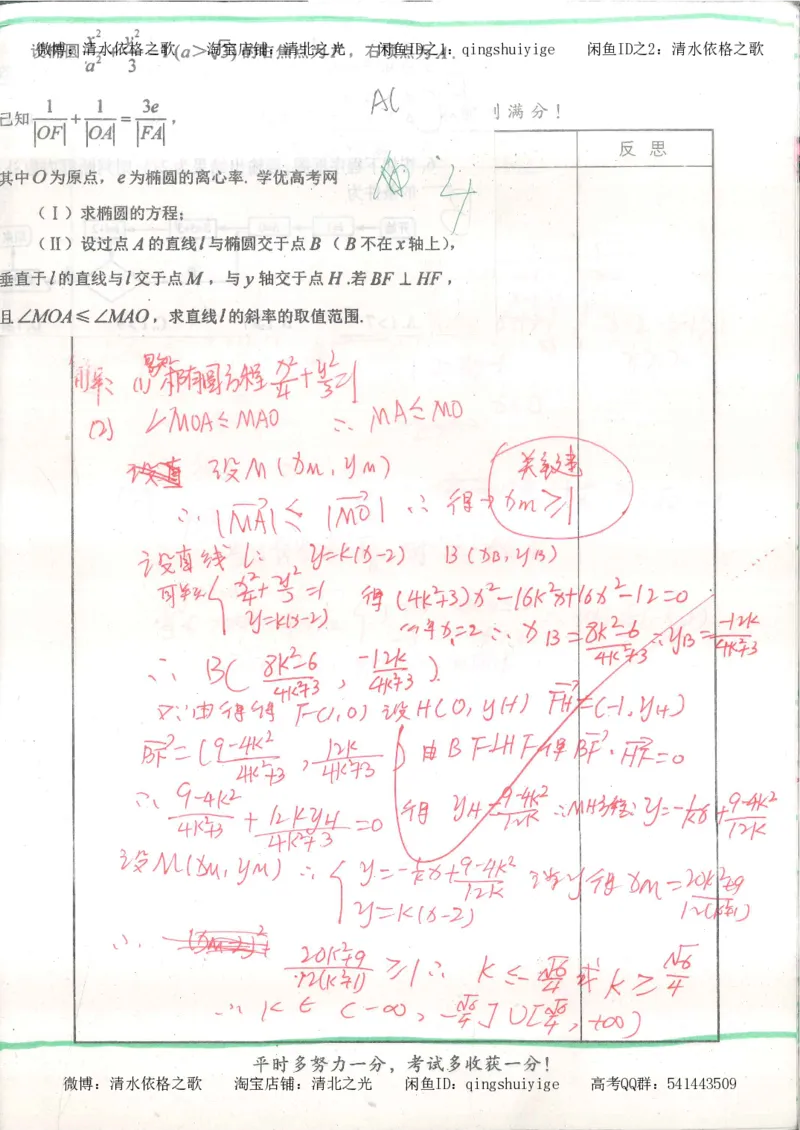 微博：清水依格之歌 淘宝店铺：清北之光 闲鱼ID之1：qingshuiyige 闲鱼ID之2：清水依格之歌
设椭圆 x²/a² + y²/3 = 1 (a>√3) 的右焦点为F，右顶点为A.
A(
已知 1/|OF| + 1/|OA| = 3e/|FA|，
满分！
反思
其中O为原点，e为椭圆的离心率. 学优高考网
4
（Ⅰ）求椭圆的方程；
（Ⅱ）设过点A的直线l与椭圆交于点B（B不在x轴上），
垂直于l的直线与l交于点M，与y轴交于点H.若BF⊥HF，
且∠MOA≤∠MAO，求直线l的斜率的取值范围.
解: (1) 椭圆方程 x²/4+y²/3=1
(2) ∠MOA≤∠MAO ∴ MA≤MO
设M(xm,ym)
关键
∵ |MA|≤|MO| ∴ 得→xm≥1
设直线l: y=k(x-2) B(xB,yB)
{ x²/4+y²/3=1 y=k(x-2) 得(4k²+3)x²-16k²x+16x²-12=0
x=2 ∴ xB=8k²-6/4k²+3 ∴yB=-12k/4k²+3
∴ B(8k²-6/4k²+3, -12k/4k²+3).
又∵由得得 F(1,0) 设H(0,yH) FH=(-1,yH)
BF=(9-4k²/4k²+3, 12k/4k²+3) 由BF⊥HF得BF·HF=0
∴ 9-4k²/4k²+3 + 12kyH/4k²+3=0 得 yH=9-4k²/12k ∴MH方程: y=-1/k x+9-4k²/12k
设M(xm,ym) ∴ { y=-1/k x+9-4k²/12k y=k(x-2) 消y得xm=20k²+9/12(k²+1)
∴ 20k²+9/12(k²+1) ≥1 ∴ k≤-√6/4 或 k≥√6/4
∴ k∈(-∞, -√6/4]∪[√6/4, +∞)
平时多努力一分，考试多收获一分！
微博：清水依格之歌 淘宝店铺：清北之光 闲鱼ID：qingshuiyige 高考QQ群：541443509